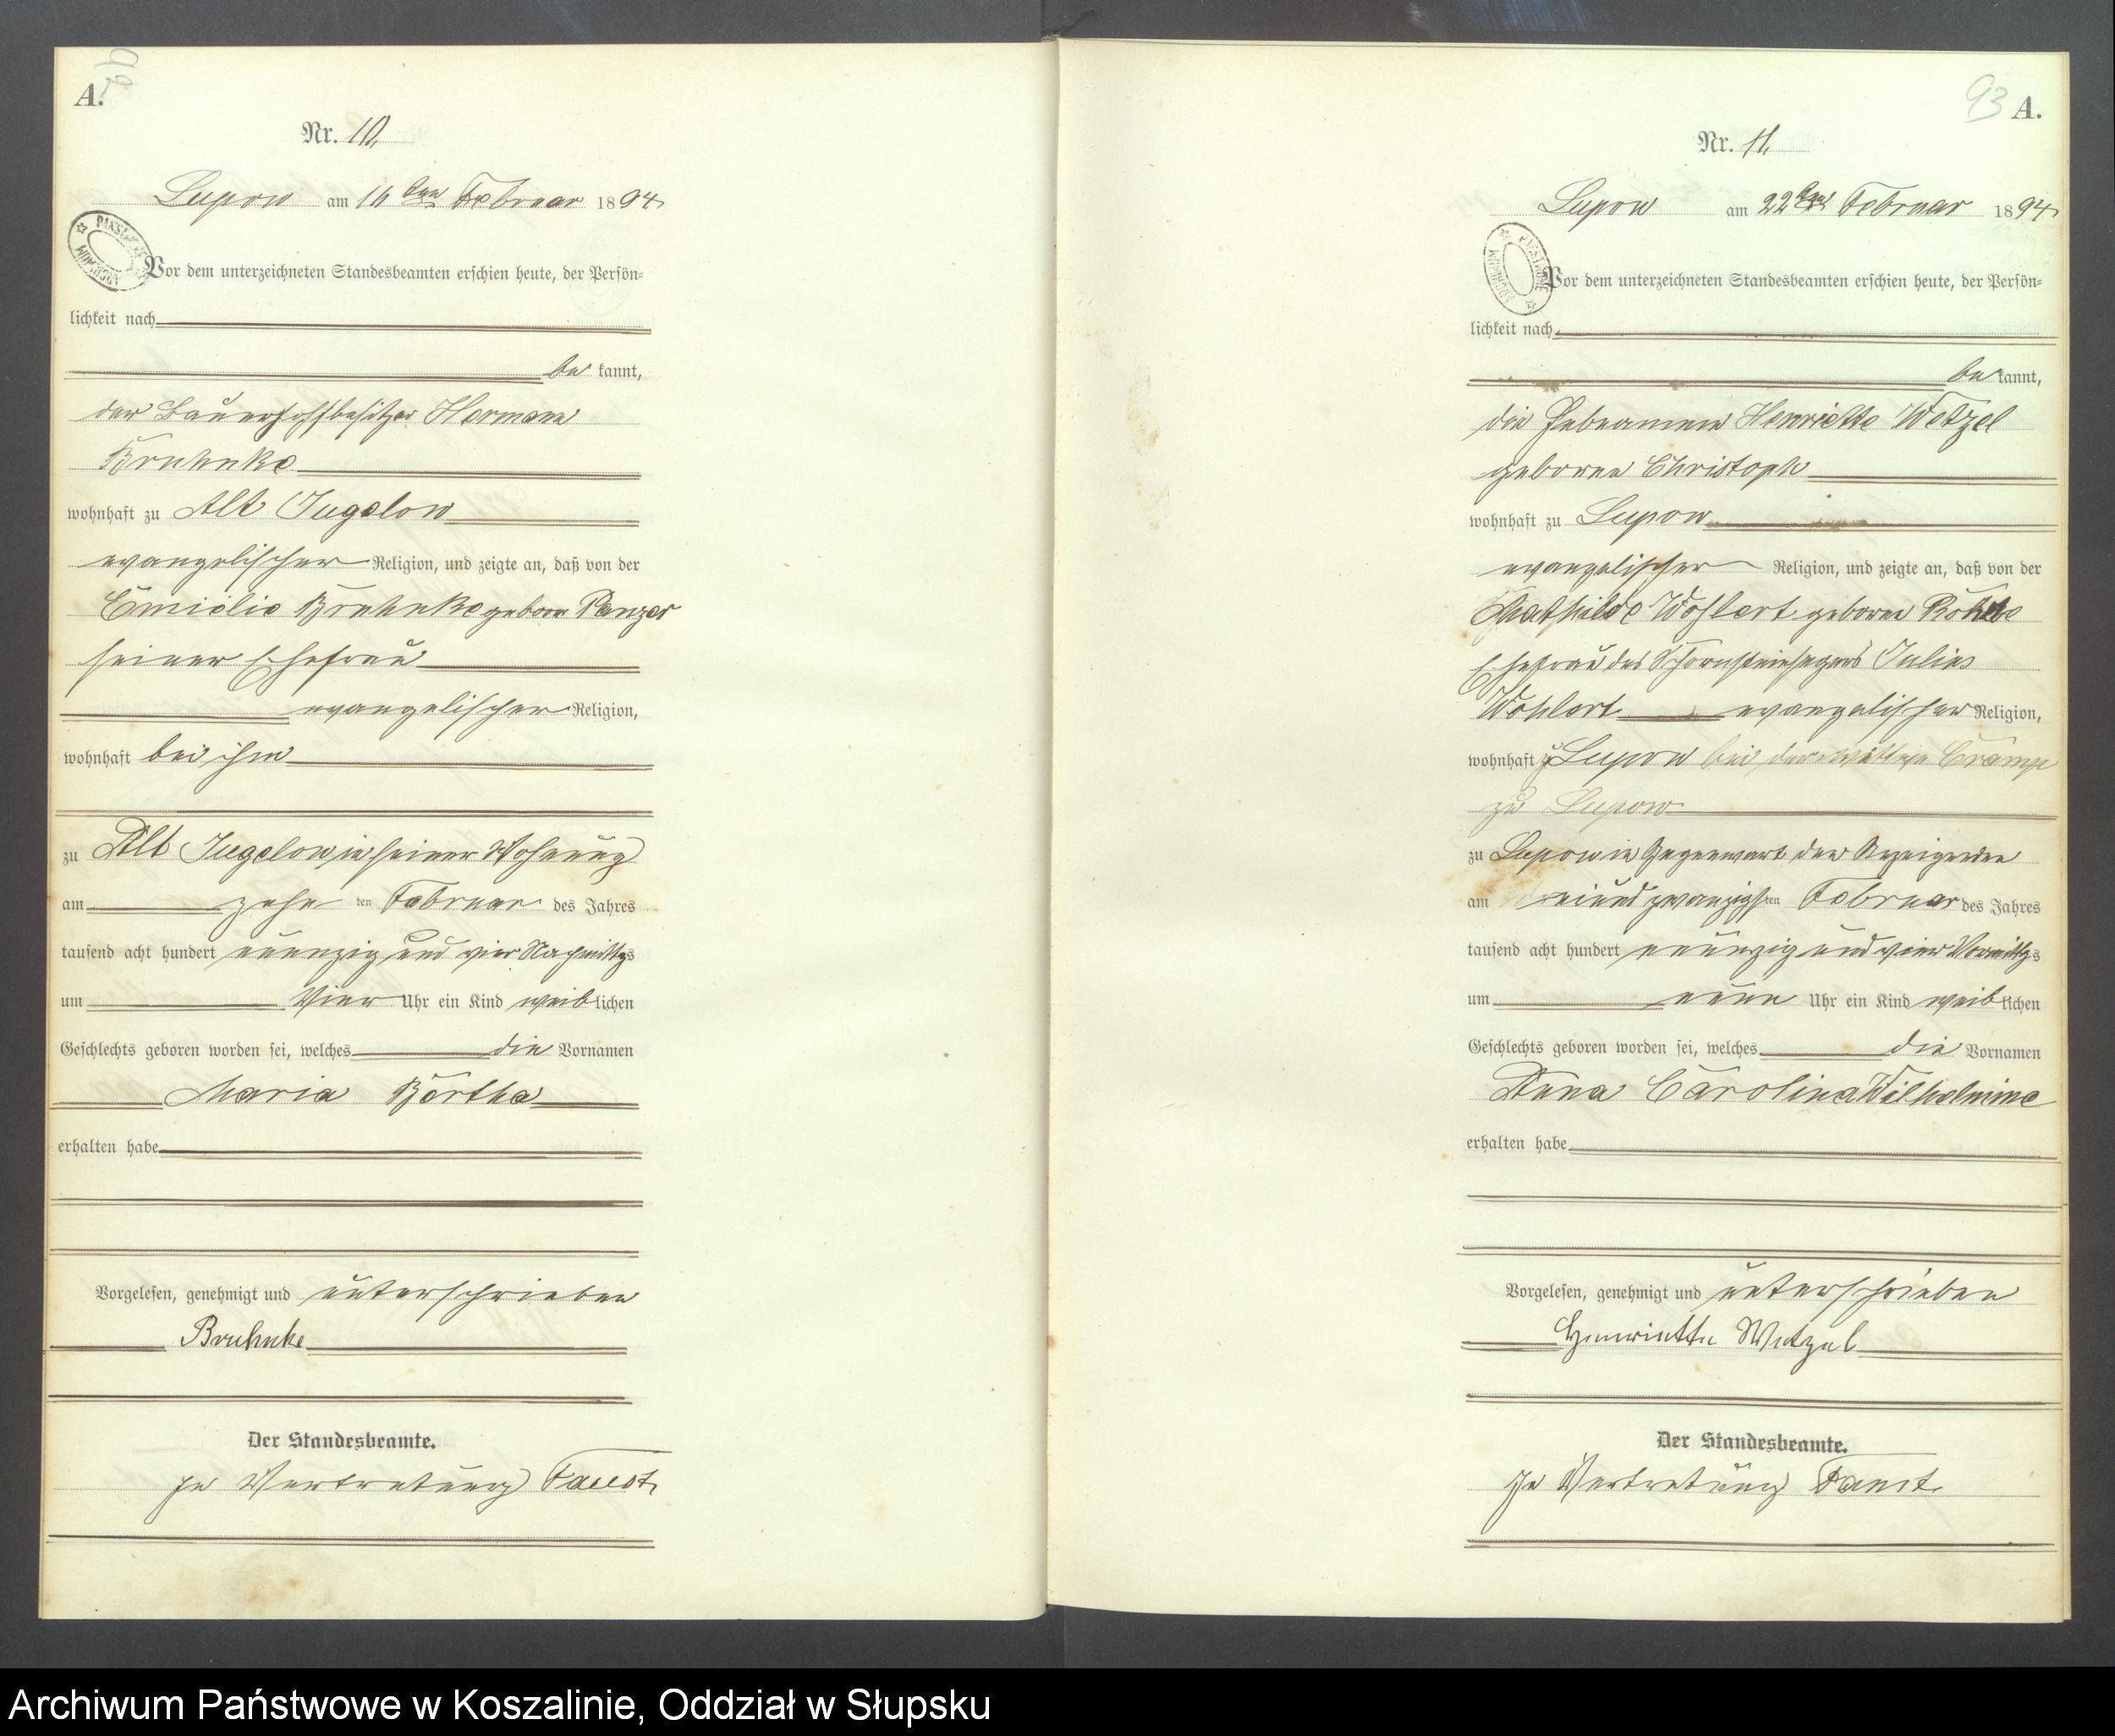 92
A.
Nr. 10.
Lupow am 16ten Februar 1894
Vor dem unterzeichneten Standesbeamten erschien heute, der Persön-
lichkeit nach
be kannt,
der Bauerhofsbesitzer Hermann
Bruhnke
wohnhaft zu Alt Jugelow
evangelischer Religion, und zeigte an, daß von der
Emielie Bruhnke geborne Panzer
seiner Ehefrau
evangelischer Religion,
wohnhaft bei ihm
zu Alt Jugelow in seiner Wohnung
am zehn ten Februar des Jahres
tausend acht hundert neunzig und vier Nachmittgs
um Vier Uhr ein Kind weiblichen
Geschlechts geboren worden sei, welches die Vornamen
Maria Bertha
erhalten habe
Vorgelesen, genehmigt und unterschrieben
Bruhnke
Der Standesbeamte.
In Vertretung Faust
93 A.
Nr. 11.
Lupow am 22ten Februar 1894
Vor dem unterzeichneten Standesbeamten erschien heute, der Persön-
lichkeit nach
be kannt,
die Hebeamme Henriette Wetzel
geborne Christoph
wohnhaft zu Lupow
evangelischer Religion, und zeigte an, daß von der
Mathilde Wohlert geborne
Ehefrau des Schornsteinfegers Julius
Wohlert evangelischer Religion,
wohnhaft zu Lupow bei der Wittwe
zu Lupow
zu Lupow in Gegenwart der Anzeigenden
am zwanzigsten Februar des Jahres
tausend acht hundert neunzig und vier Vormittgs
um neun Uhr ein Kind weiblichen
Geschlechts geboren worden sei, welches die Vornamen
Anna Carolina Wilhelmine
erhalten habe
Vorgelesen, genehmigt und unterschrieben
Henriette Wetzel
Der Standesbeamte.
In Vertretung Faust
Archiwum Państwowe w Koszalinie, Oddział w Słupsku